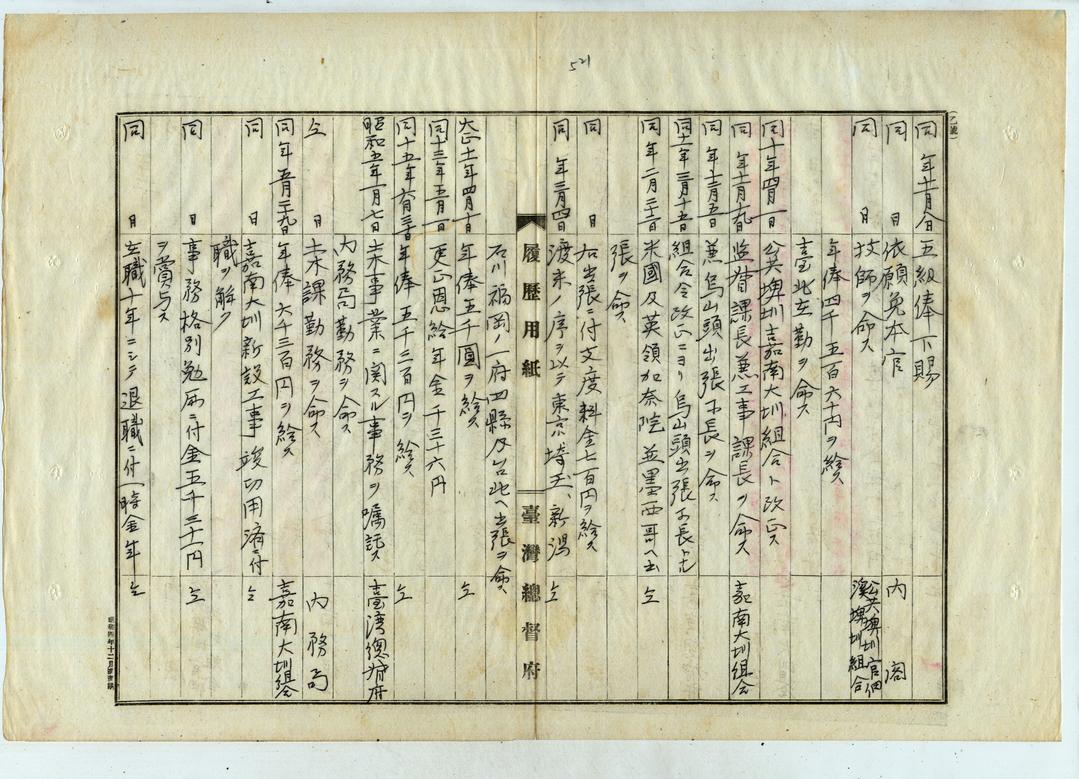 521
(乙號)
同 年十一月八日 五級俸下賜
同 日 依願免本官 内閣
同 日 技師ヲ命ス 公共埤圳官佃溪埤圳組合
年俸四千五百六十円ヲ給ス
臺北在勤ヲ命ス
同十年四月一日 公共埤圳嘉南大圳組合ト改正ス
同 年十月十九日 監督課長兼工事課長ヲ命ス 嘉南大圳組合
同 年十二月五日 兼烏山頭出張所長ヲ命ス
同十一年三月十五日 組合令改正ニヨリ烏山頭出張所長トナル
同 年二月二十二日 米國及英領加奈陀並墨西哥ヘ出 仝
張ヲ命ス
同 日 右出張ニ付支度料金七百円ヲ給ス
同 年三月四日 渡米ノ序ヲ以テ東京、埼玉、新潟 仝
履歴用紙
臺灣總督府
石川福岡ノ一府四縣及台北ヘ出張ヲ命ス
大正十一年四月十日 年俸五千圓ヲ給ス 仝
同十三年五月一日 更正恩給年金千三十六円
同十五年六月三十日 年俸五千三百円ヲ給ス 仝
昭和五年一月七日 土木事業ニ関スル事務ヲ嘱託ス 臺湾總督府
内務局勤務ヲ命ス
仝 日 土木課勤務ヲ命ス 内務局
同 年五月二九日 年俸六千三百円ヲ給ス 嘉南大圳組合
同 日 嘉南大圳新設工事竣功用済ニ付 仝
職ヲ解ク
同 日 事務格別勉励ニ付金五千三十一円 仝
ヲ賞与ス
同 日 在職十年ニシテ退職ニ付一時金年 仝